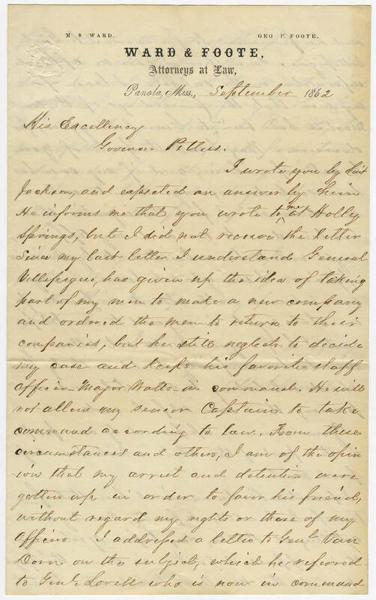 M. S. WARD. GEO. P. FOOTE.
WARD & FOOTE,
Attorneys at Law,
Panola, Miss., September 1862
His Excellency
Govenor Pettus.
I wrote you by Lieut
Jackson, and expected an answer by him
He informs me that you wrote to me at Holly
Springs, but I did not receive the letter
Since my last letter I understand General
Villepigue, has given up the idea of taking
part of my men to make a new company
and ordered the men to return to their
companies, but he still neglects to decide
my case and keeps his favorite staff
officer Major Watts in command. He will
not allow my senior Captain to take
command according to law. From these
circumstances and others, I am of the opin
ion that my arrest and detention were
gotten up in order to favor his friend,
without regard my rights or those of my
officers. I addressed a letter to Genl. Van
Dorn on the subject, which he referred
to Genl. Lovell who is now in command